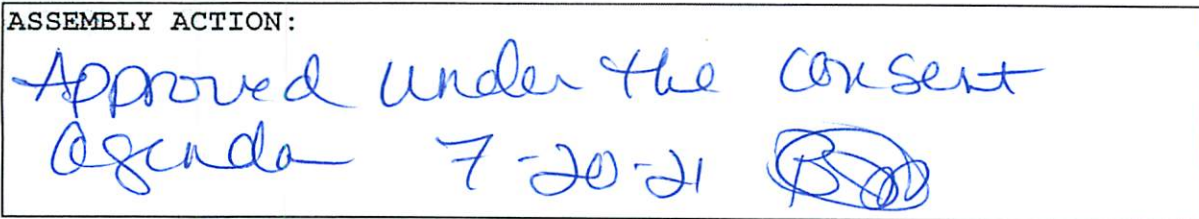 ASSEMBLY ACTION:
Approved under the consent
agenda 7-20-21